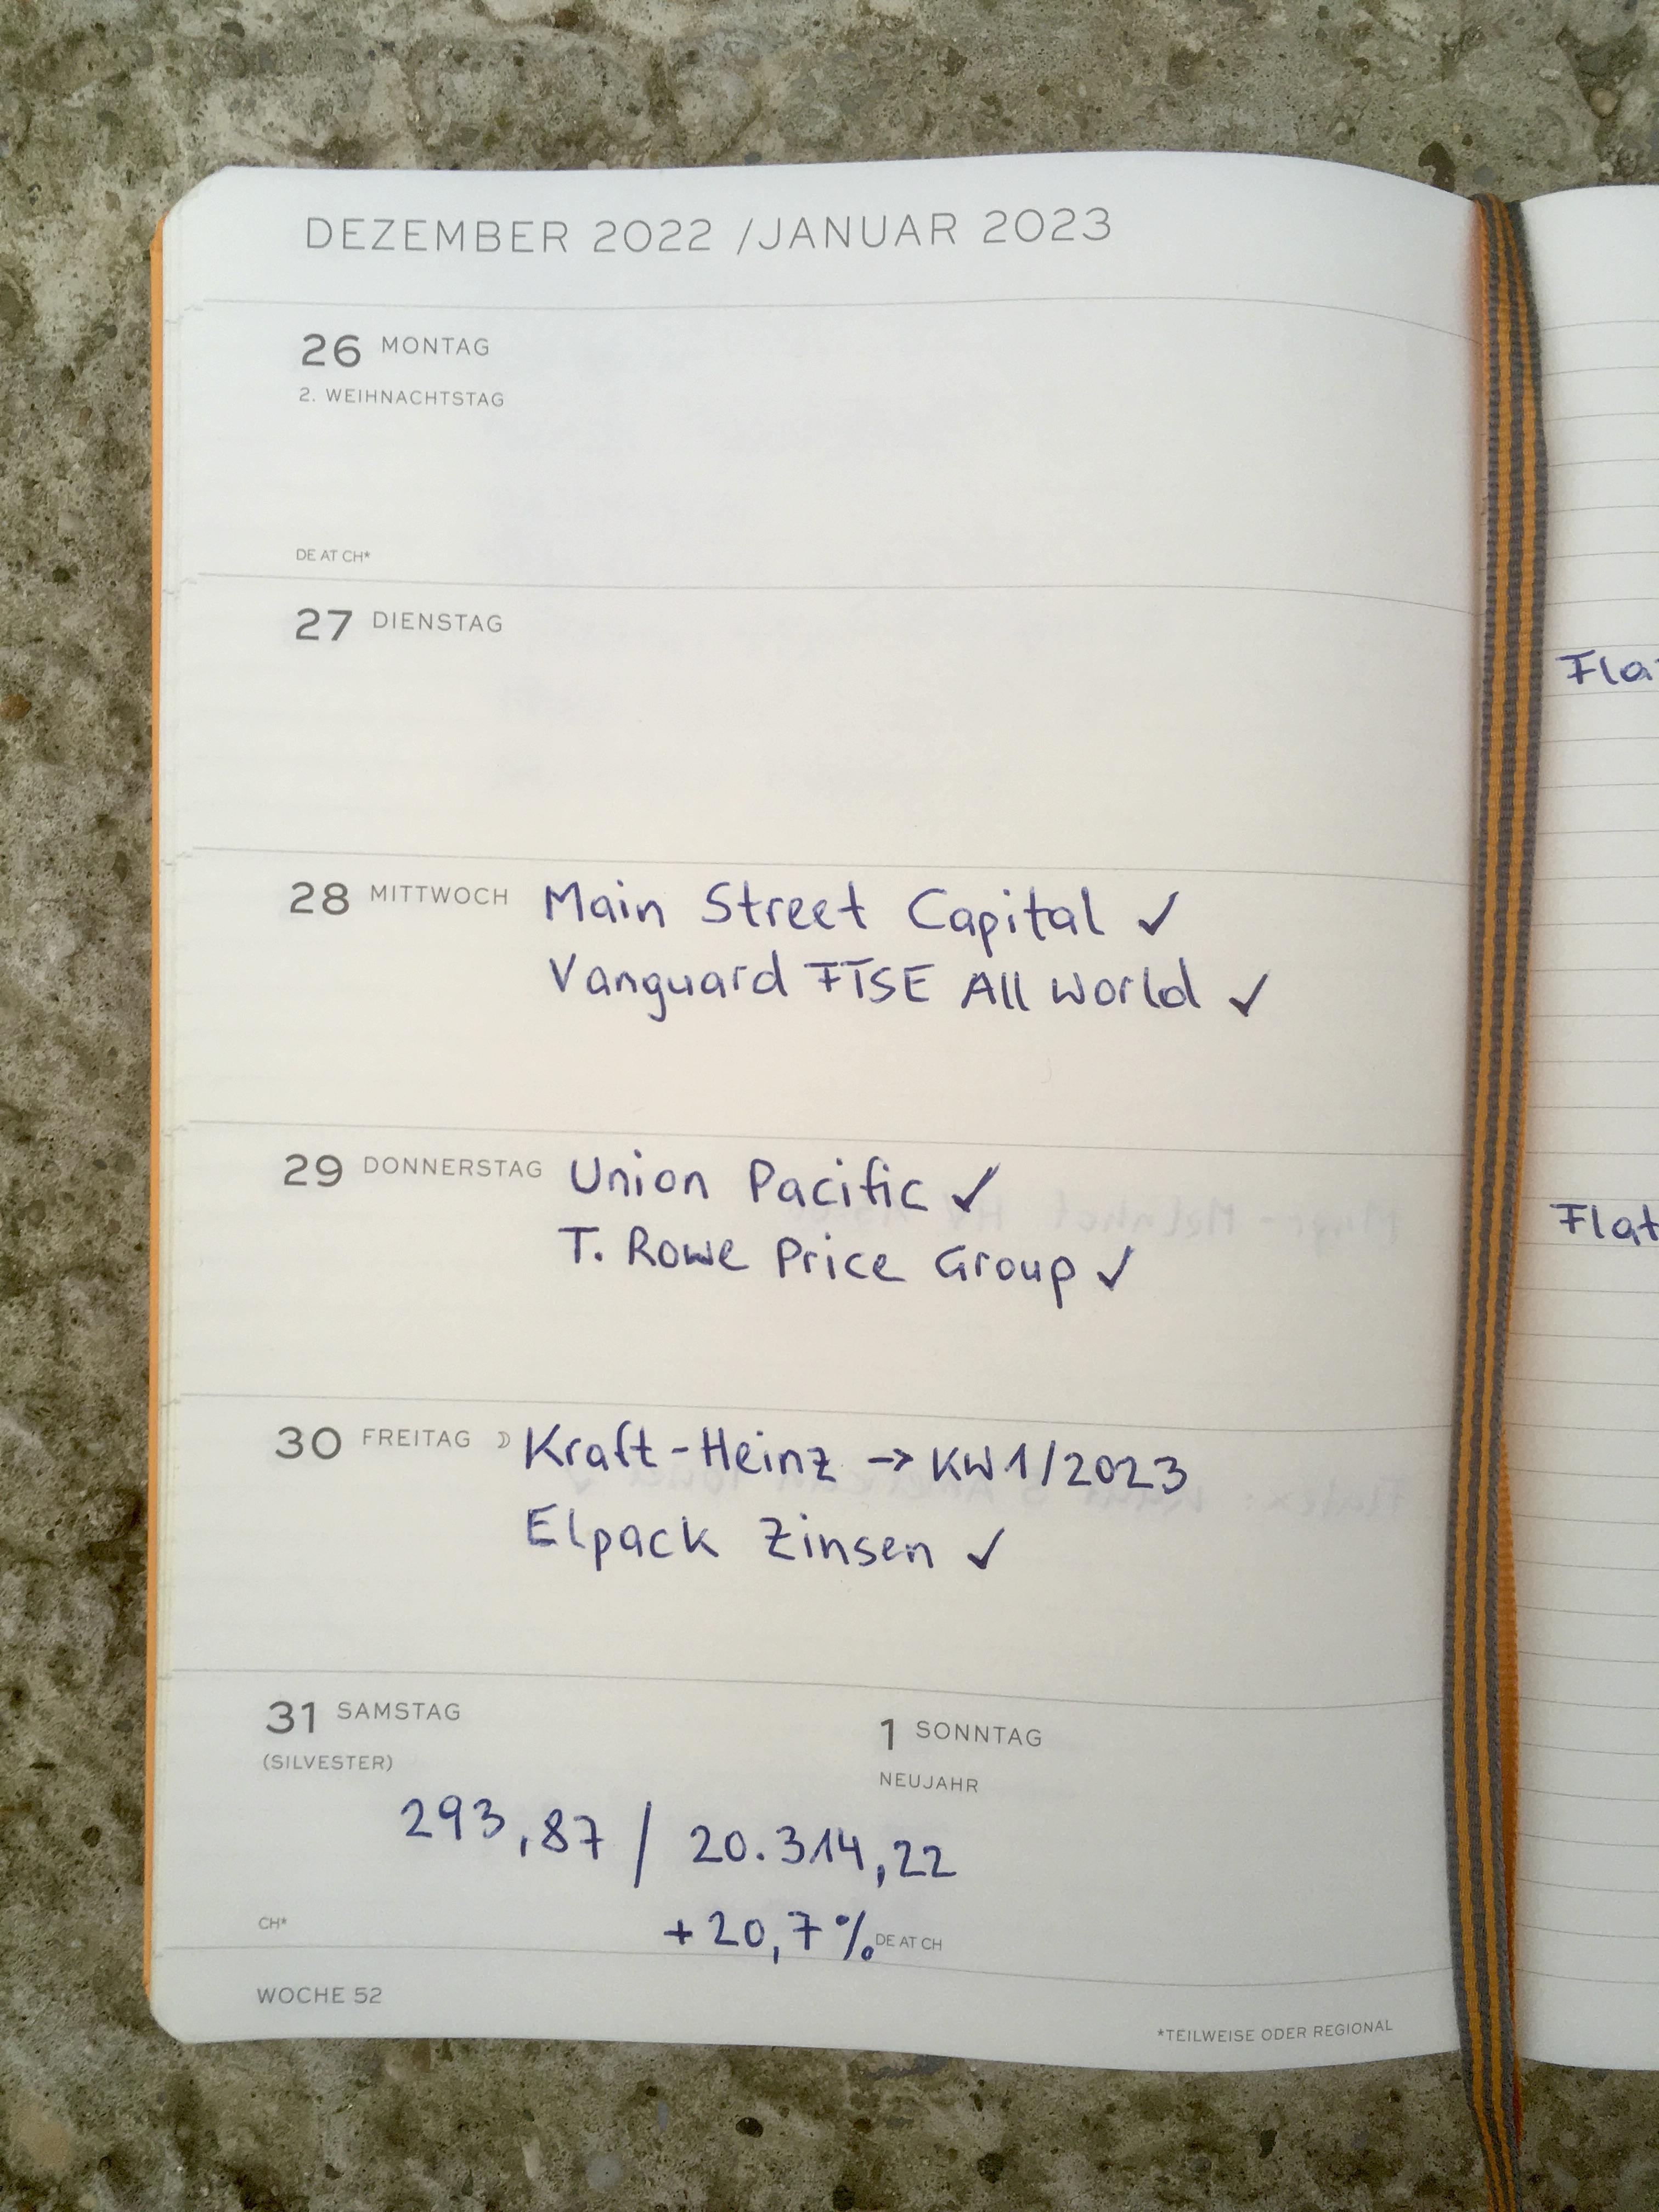 DEZEMBER 2022 /JANUAR 2023
26 MONTAG
2. WEIHNACHTSTAG
DE AT CH*
27 DIENSTAG
28 MITTWOCH Main Street Capital ✓
Vanguard FTSE All World ✓
29 DONNERSTAG Union Pacific ✓
T. Rowe Price Group ✓
30 FREITAG ☽ Kraft-Heinz → KW1/2023
Elpack Zinsen ✓
31 SAMSTAG
(SILVESTER)
1 SONNTAG
NEUJAHR
293,87 / 20.314,22
+20,7%
CH*
DE AT CH
WOCHE 52
*TEILWEISE ODER REGIONAL
Fla
Flat